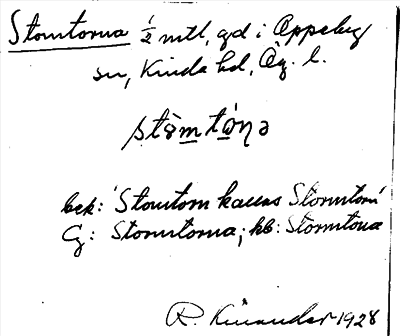 Stomtorna ½ mtl, gd i Oppeby
sn, Kinda hd, Ög. l.
stòmtòṇə
bek: 'Stomtom kallas Stormtorn'
Cg: Stomtorna; kb: Stormtorna
R. Kinander 1928